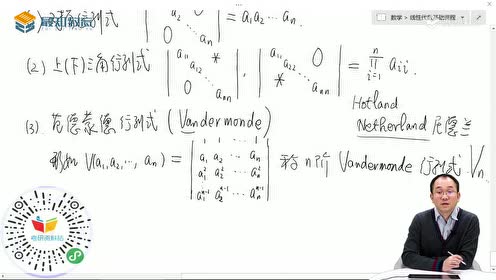 数学 > 线性代数基础课程
) 对角行列式 | a₁ a₂ 0 0 ⋱ aₙ | = a₁a₂⋯aₙ
(2) 上(下)三角行列式 | a₁₁ a₂₂ * 0 ⋱ aₙₙ | , | a₁₁ a₂₂ 0 * ⋱ aₙₙ | = ∏ⁿᵢ₌₁ aᵢᵢ .
Hotland
Netherland 尼德兰
(3) 范德蒙德行列式 (Vandermonde)
形如 V(a₁,a₂,⋯,aₙ) = | 1 1 ⋯ 1
a₁ a₂ ⋯ aₙ
a₁² a₂² ⋯ aₙ²
a₁ⁿ⁻¹ a₂ⁿ⁻¹ ⋯ aₙⁿ⁻¹ | 称 n 阶 Vandermonde 行列式 Vₙ
考研资料站